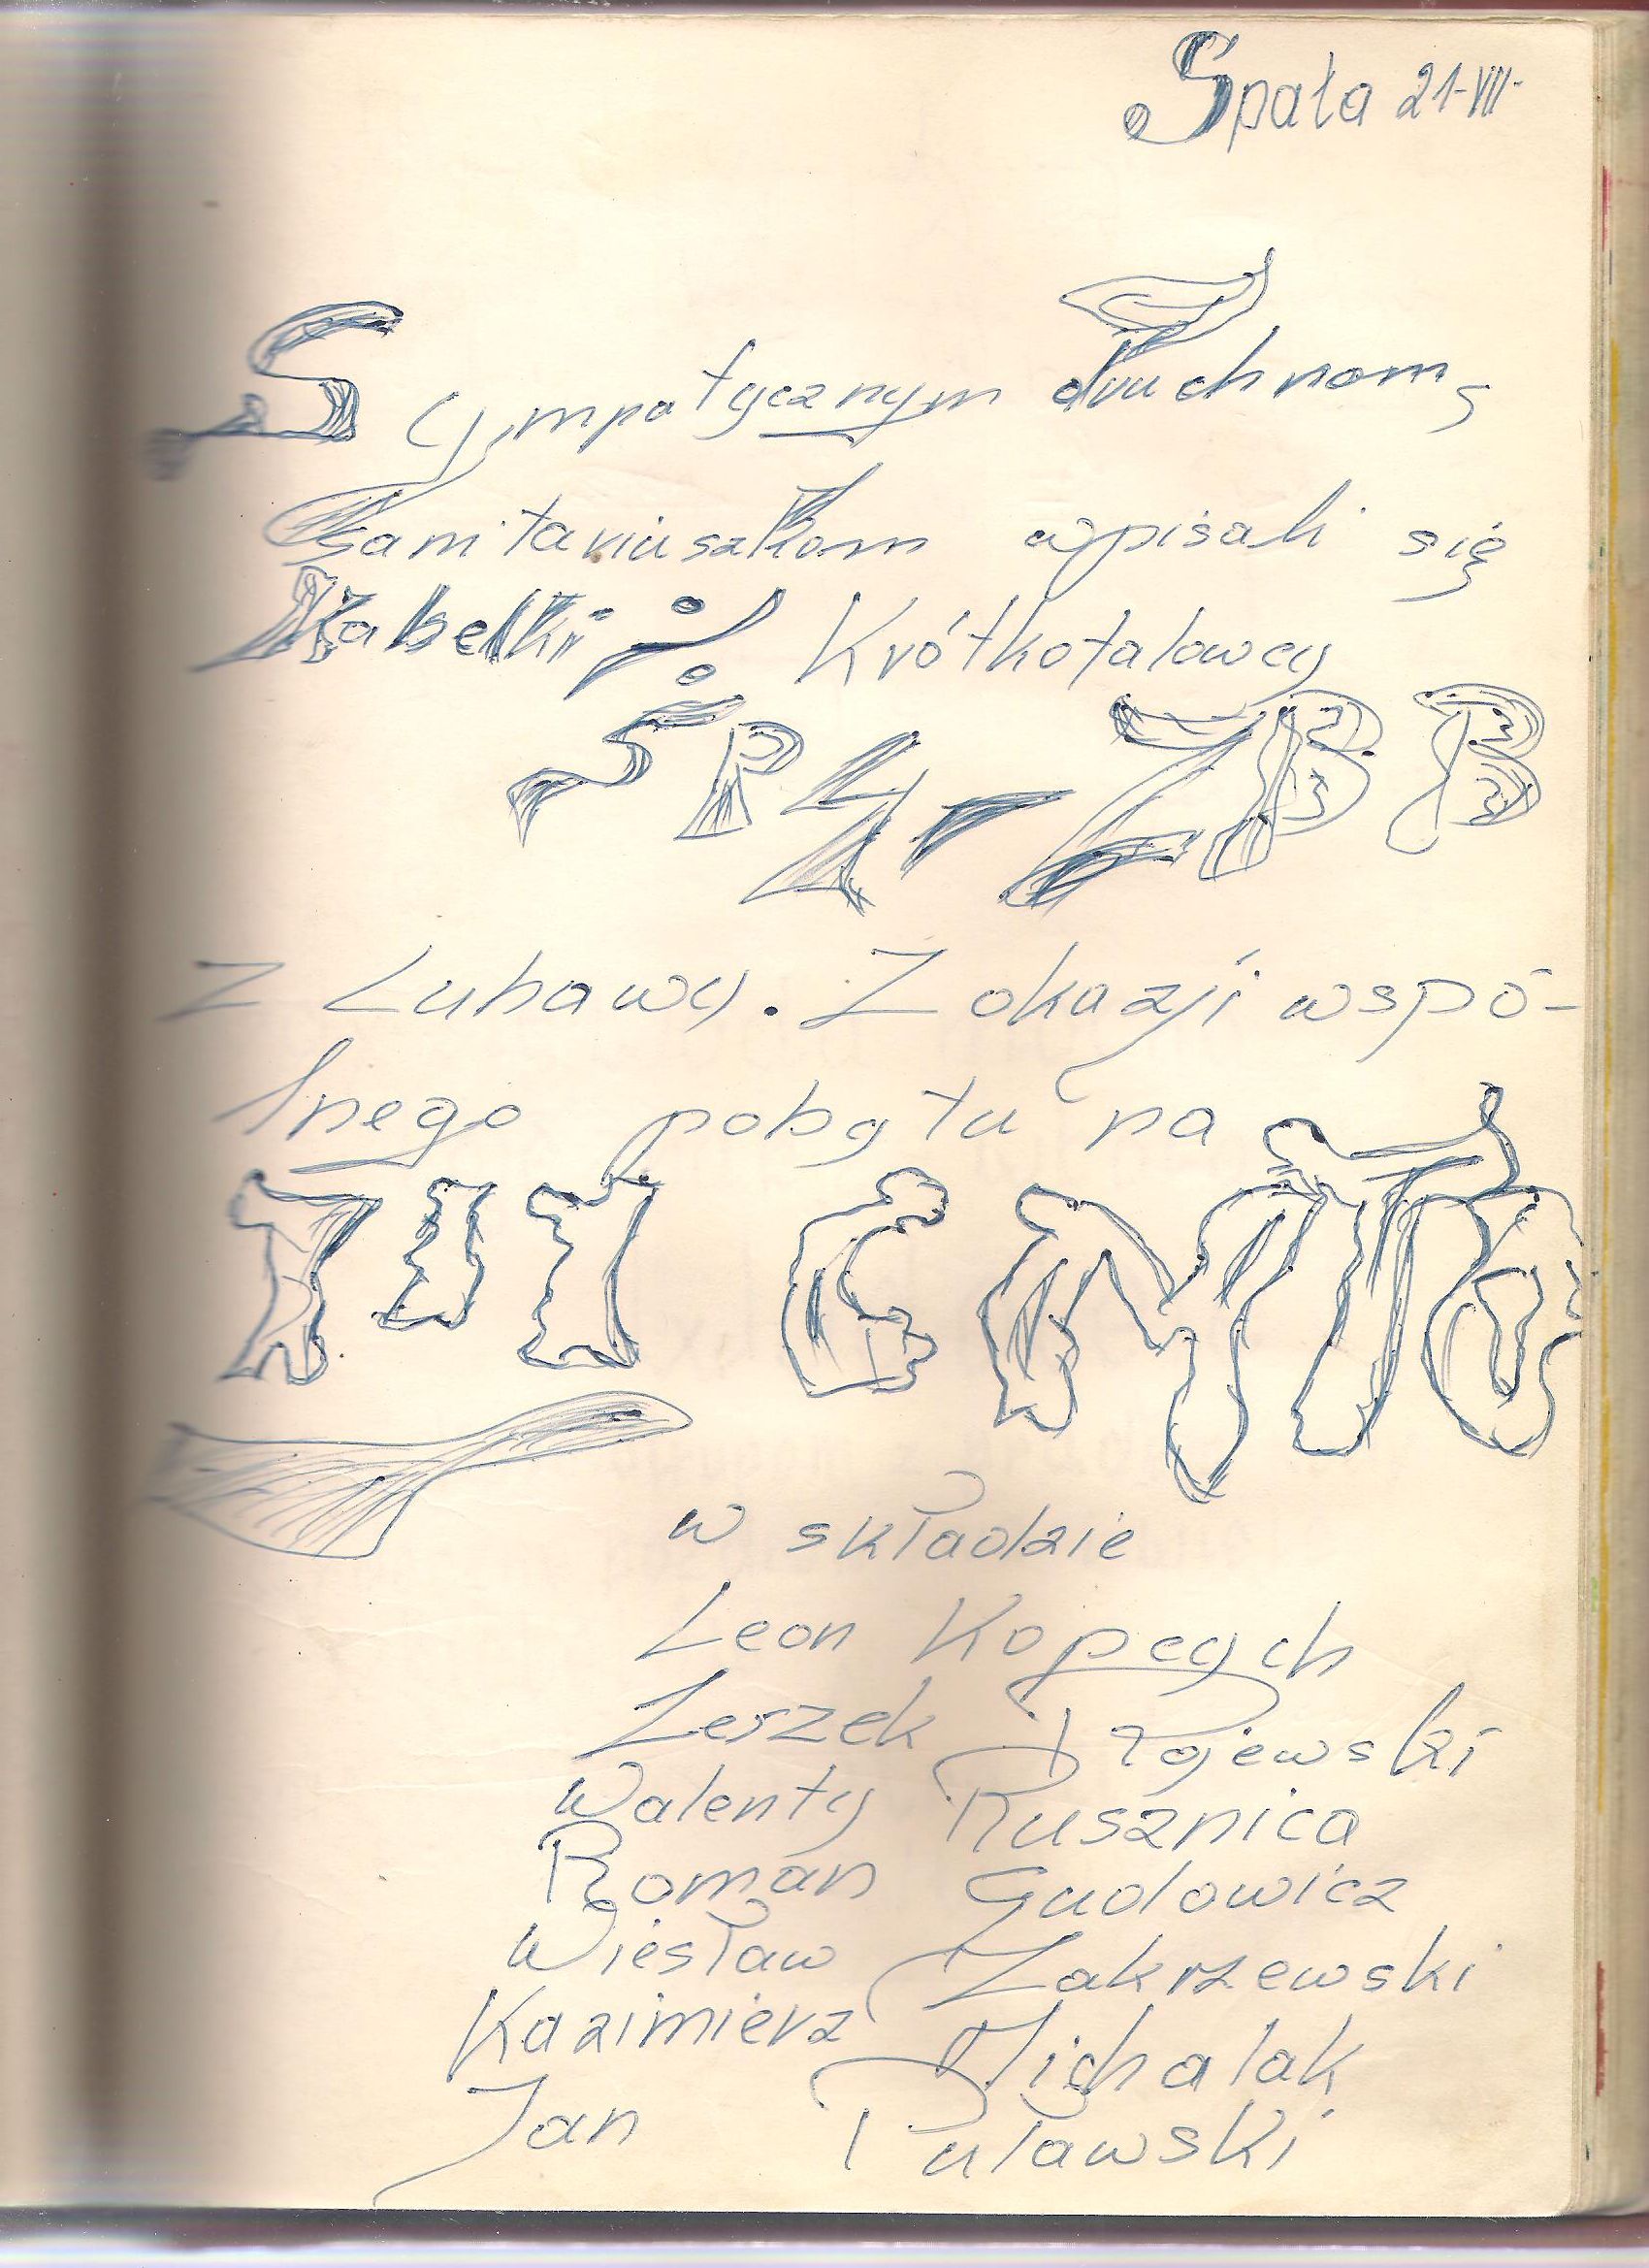 Spała 21-VII-
Sympatycznym druchnom,
Sanitariuszkom wpisali się
Krótkofalowcy
SP4-ZBB
z Lubawy. Z okazji wspó-
lnego pobytu na
w składzie
Leon Kopeych
Leszek
Walenty Rusznica
Roman Gudowicz
Wiesław Zakrzewski
Kazimierz Michalak
Jan Puławski